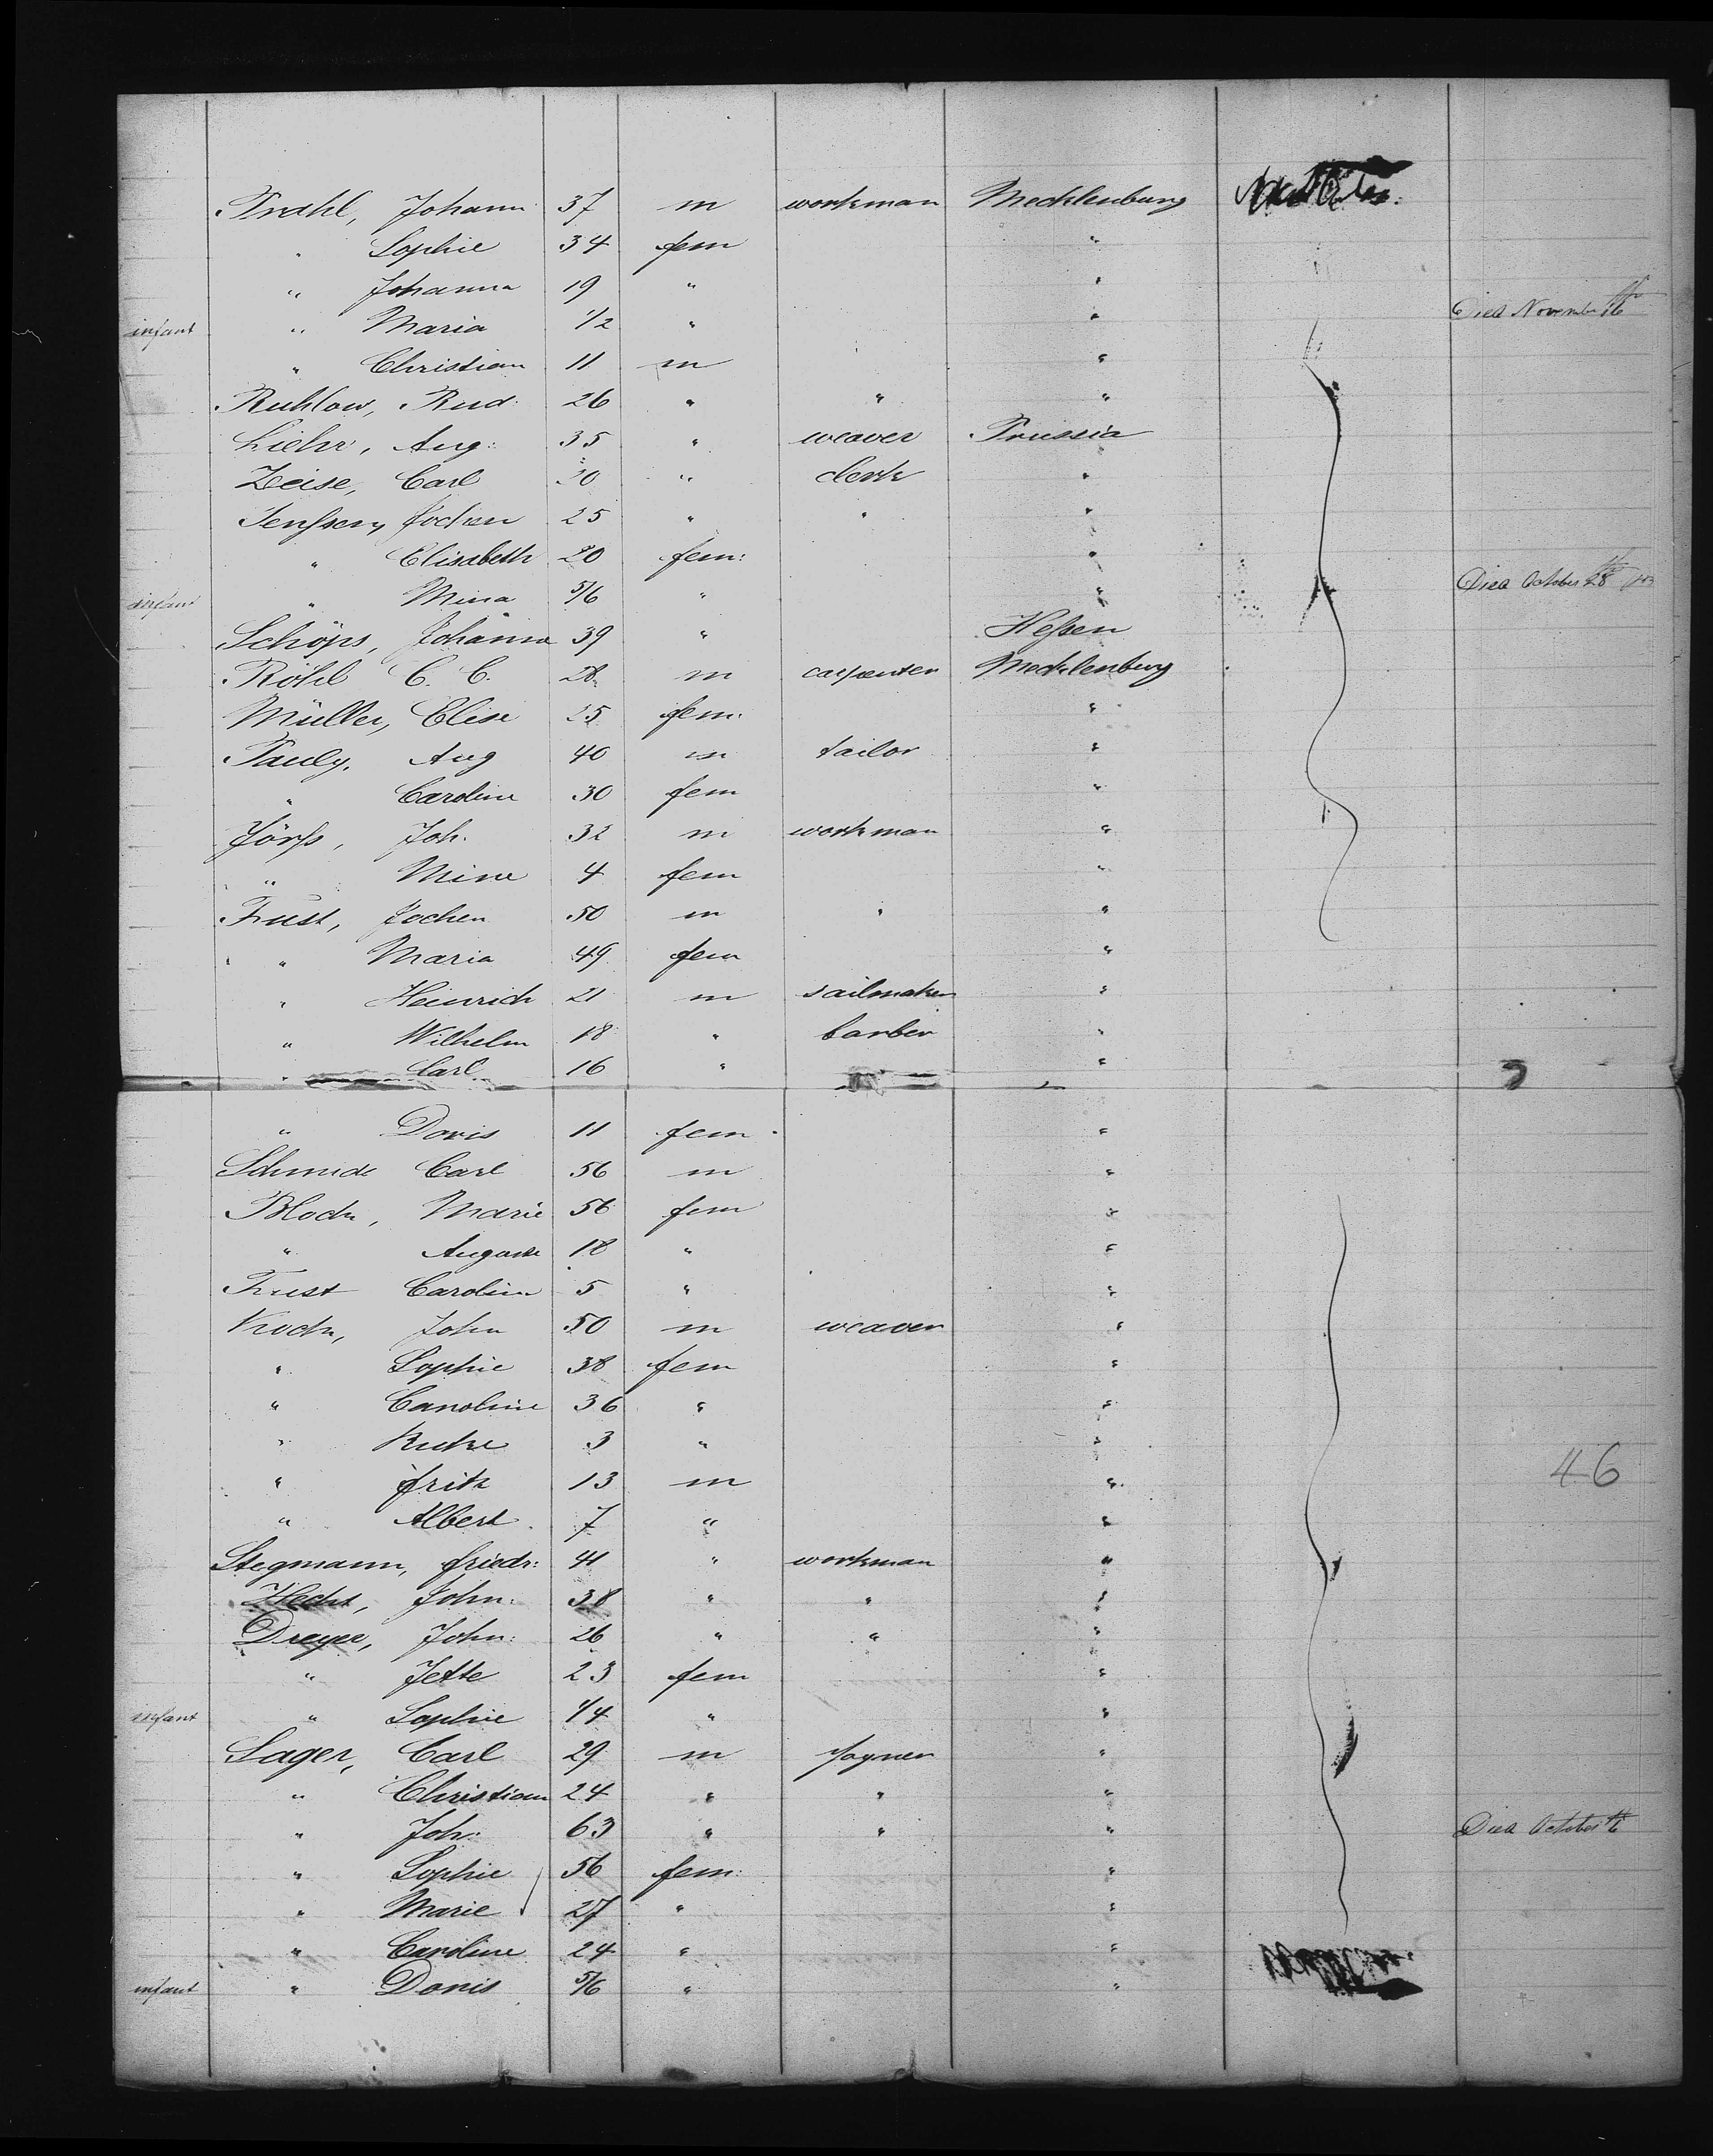 Prahl, Johann 37 m workman Mecklenburg
" Sophie 34 fem "
" Johanna 19 " "
infant " Maria 1/2 " " Died November 16th
" Christian 11 m "
Ruhlow, Rud. 26 " " "
Liehr, Aug: 35 " weaver Prussia
Zeise, Carl 20 " clerk "
Jenssen, Jochen 25 " " "
" Elisabeth 20 fem: "
infant " Mina 5/6 " " Died October 28th
Schöps, Johanna 39 " Hessen
Röhl C. C. 28 m carpenter Mecklenburg
Müller, Elise 25 fem. "
Pauly, Aug 40 m tailor "
" Caroline 30 fem "
Jörss, Joh. 32 m workman "
" Mine 4 fem "
Fust, Jochen 50 m " "
" Maria 49 fem "
" Heinrich 21 m sailmaker "
" Wilhelm 18 " barber "
" Carl 16 " "
" Doris 11 fem. "
Schmidt Carl 56 m "
Block, Marie 56 fem "
" Auguste 18 " "
Fust Caroline 5 " "
Koch, John 50 m weaver "
" Sophie 38 fem "
" Caroline 36 " "
" 3 " "
" Fritz 13 m " 46
" Albert 7 " "
Stegmann, Friedr: 41 " workman "
Hecht, John: 38 " " "
Dreyer, John: 26 " " "
" Jette 23 fem "
infant " Sophie 1/4 " "
Lager, Carl 29 m joyner "
" Christian 24 " " "
" Joh: 63 " " " Died October
" Sophie 56 fem: "
" Marie 27 " "
" Caroline 24 " "
infant " Doris 5/6 " "